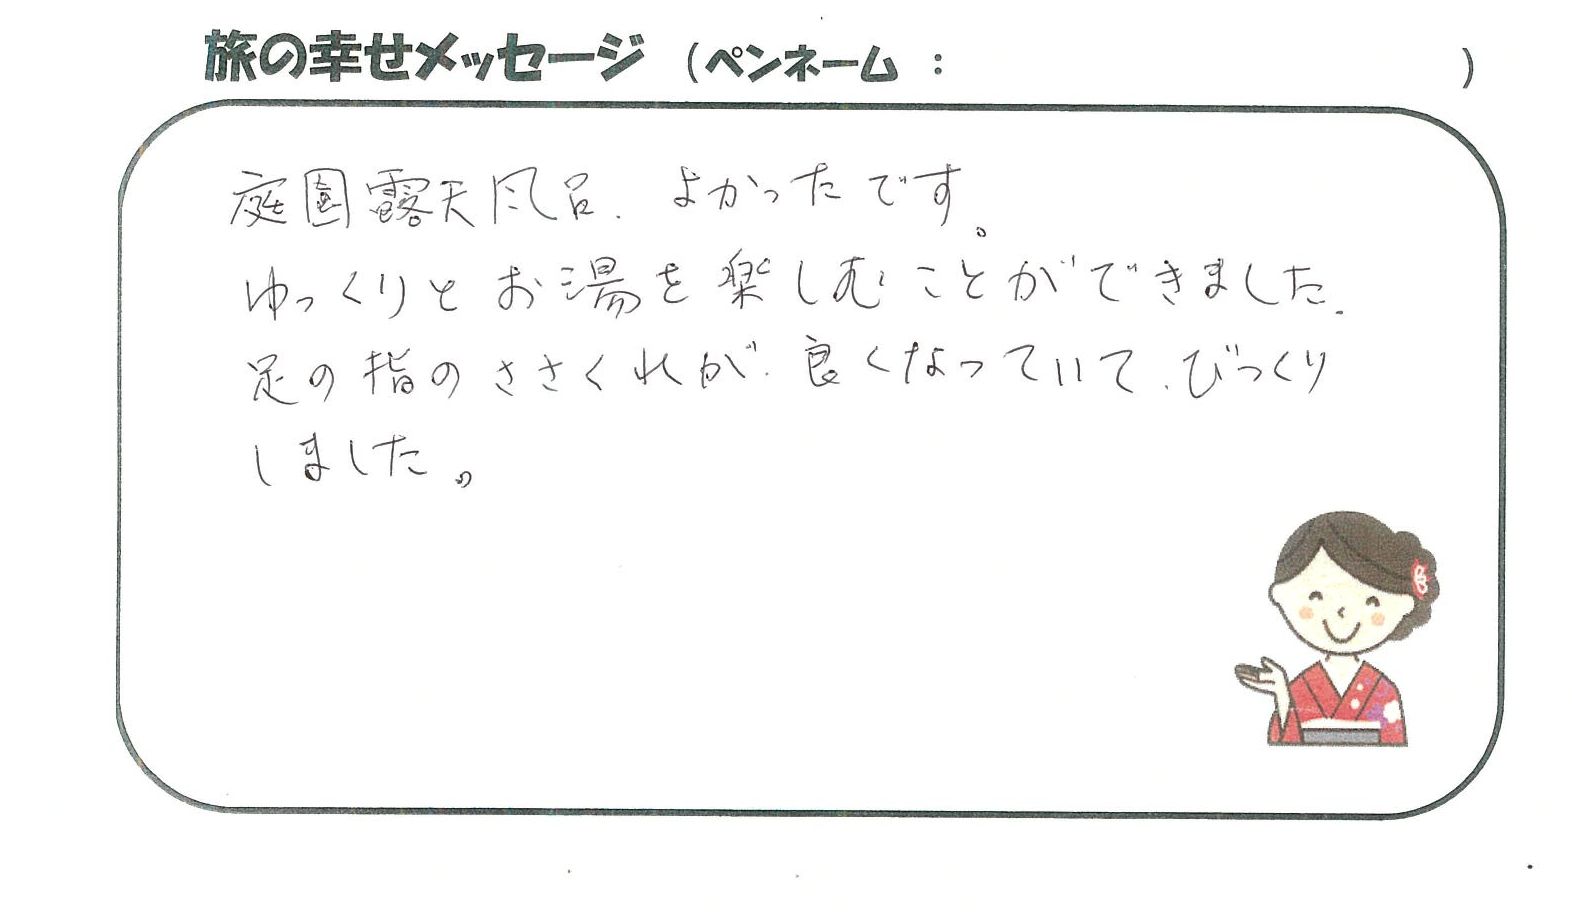 旅の幸せメッセージ (ペンネーム : )
庭園露天風呂、よかったです。
ゆっくりとお湯を楽しむことができました。
足の指のささくれが、良くなっていて、びっくり
しました。